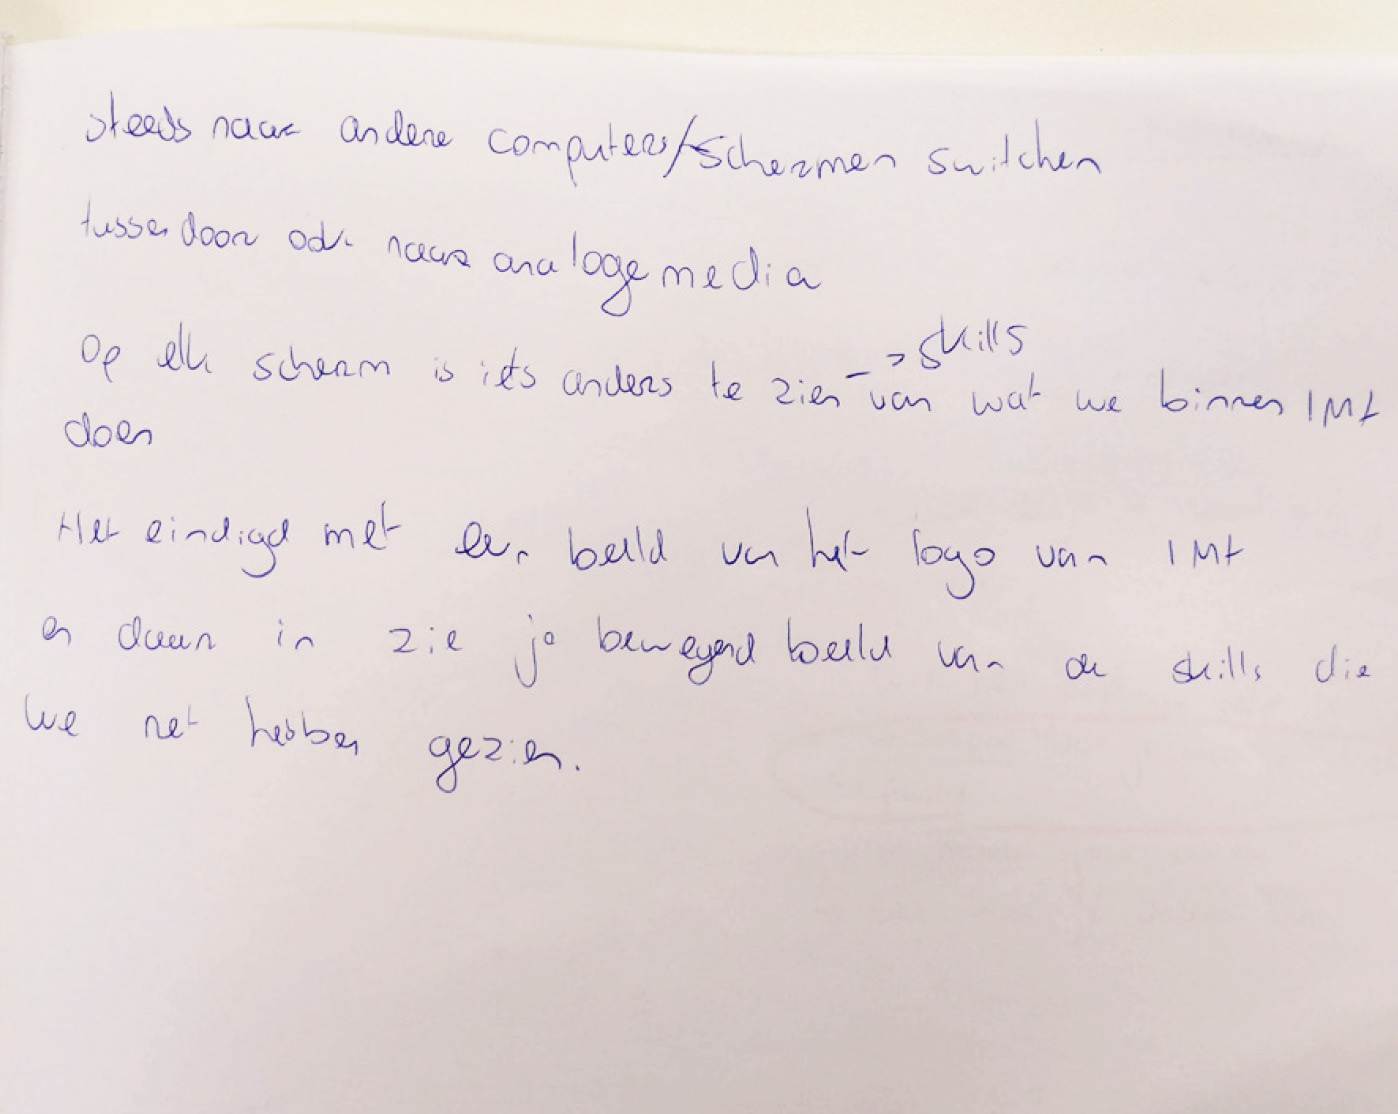 steeds naar andere computers/schermen switchen
tussendoor ook naar analoge media
op elk scherm is iets anders te zien -> skills van wat we binnen IMt
doen
Het eindigd met een beeld van het logo van IMt
en daar in zie je bewegend beeld van de skills die
we net hebben gezien.